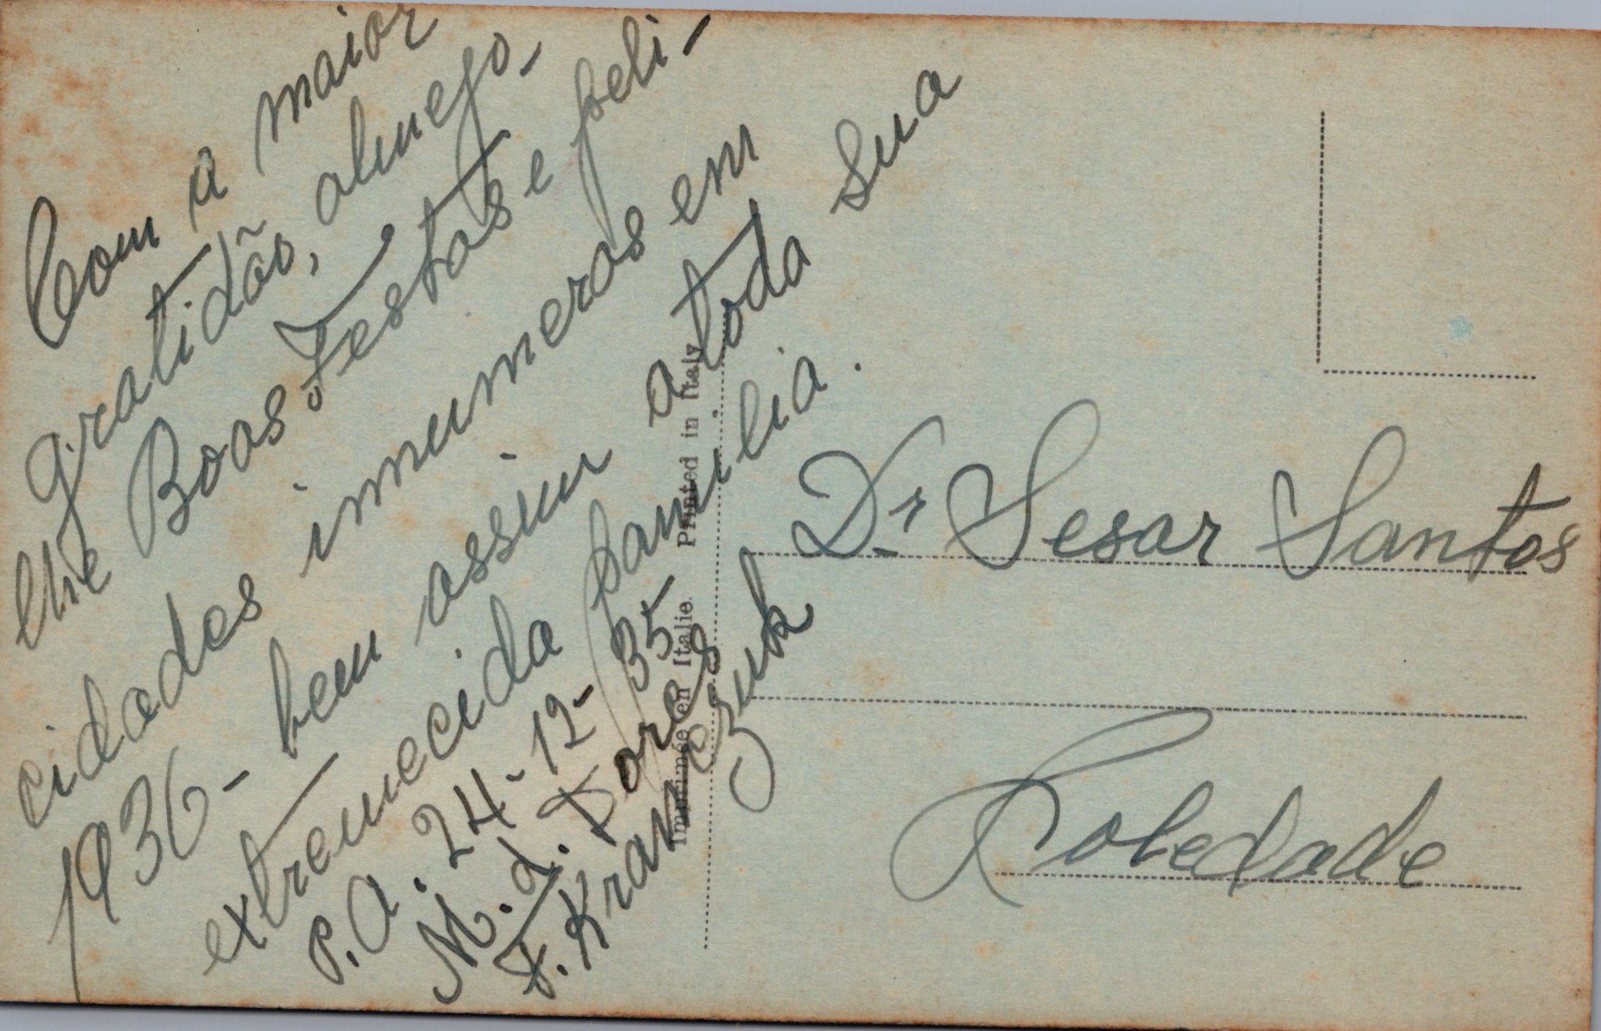 Com a maior
gratidão, almejo-
lhe Boas Festas e feli-
cidades innumeras em
1936 - bem assim a toda sua
extremecida familia.
P.A. 24-12-35
M. L. Dores
F. Kranczuk
Imprimée en Italie. Printed in Italy
Dr Sesar Santos
Soledade